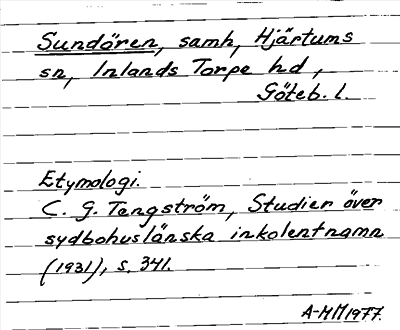 Sundören, samh, Hjärtums
sn, Inlands Torpe hd,
Göteb. l.
Etymologi.
C. G. Tengström, Studier över
sydbohuslänska inkolentnamn
(1931), s. 341.
A-MM1977.